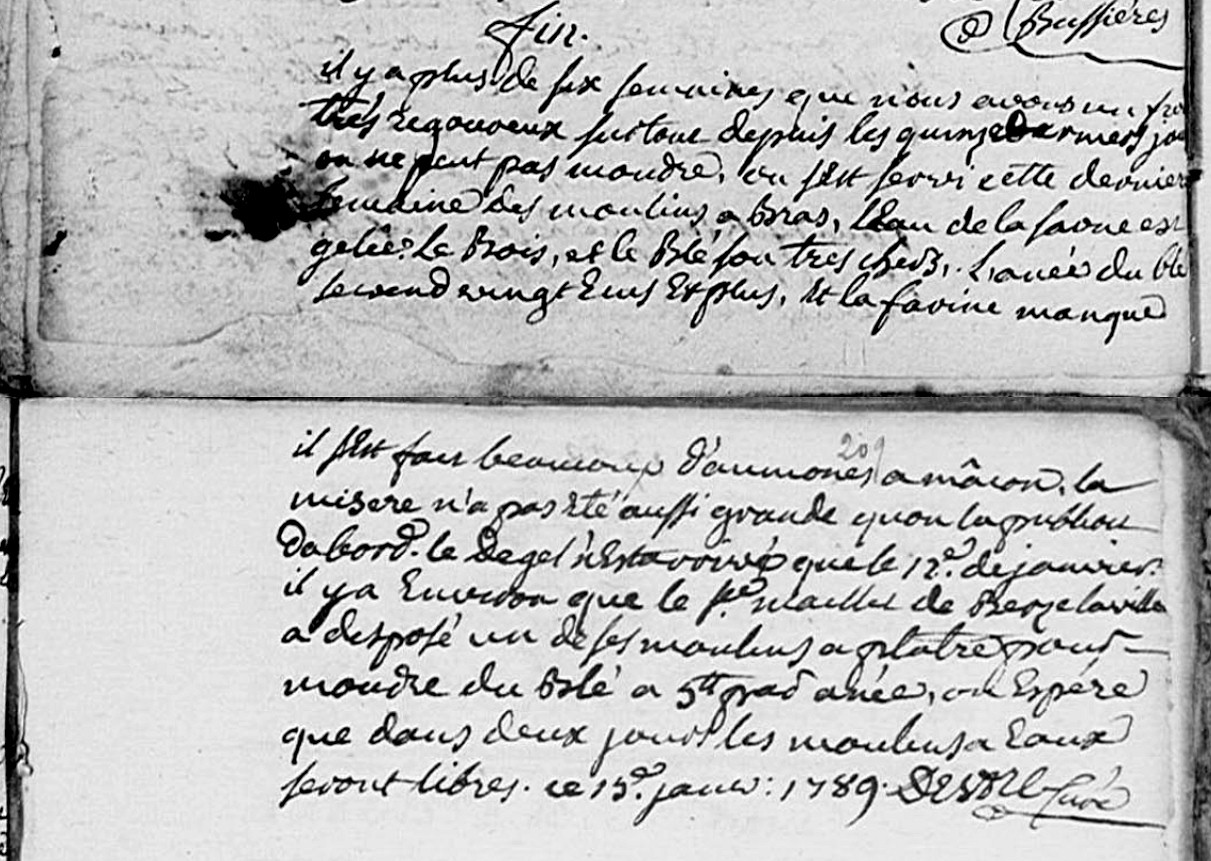 Bussiéres
fin.
il y a plus de six semaines que nous avons un fro
trés regoureux surtout depuis les quinze derniers jou
on ne peut pas moudre, on s'Est servi cette derniere
semaine des moulins a bras, l'Eau de la saone est
gelée. Le Bois, et le Blé son tres chers,. L'anée du blé
se vend vingt Ecus Et plus, Et la farine manque
209
il s'Est fait beaucoup d'aumones a mâcon, la
misere n'a pas Eté aussi grande quon la publioit
dabord. le Degel n'Est arrivé que le 12.e de janvier.
il y a Environ que le sr. maillet de Berzelaville
a desposé un de ses moulins a platre pour
moudre du Blé a 5tt par anée, on Espére
que dans deux jours les moulins a Eaux
seront libres. ce 15.e janvr: 1789. curé